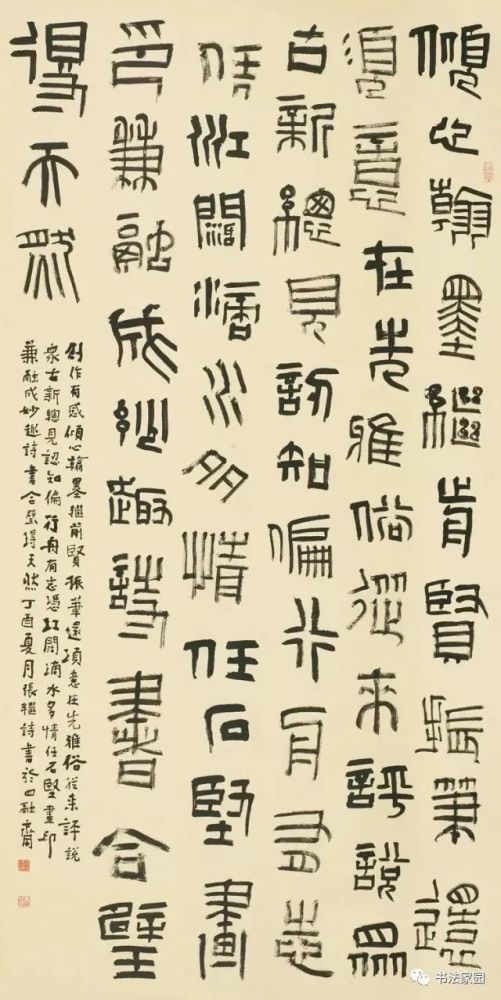 傾心翰墨繼前賢振筆還
須意在先雅俗從來評說眾
古新總見認知偏行舟有志
凭江闊滴水多情任石堅畫
印兼融成妙趣詩書合璧
得天然
創作有感傾心翰墨繼前賢振筆還須意在先雅俗從來評說
眾古新總見認知偏行舟有志憑江闊滴水多情任石堅畫印
兼融成妙趣詩書合璧得天然丁酉夏月張繼詩書於四融齋
书法家园